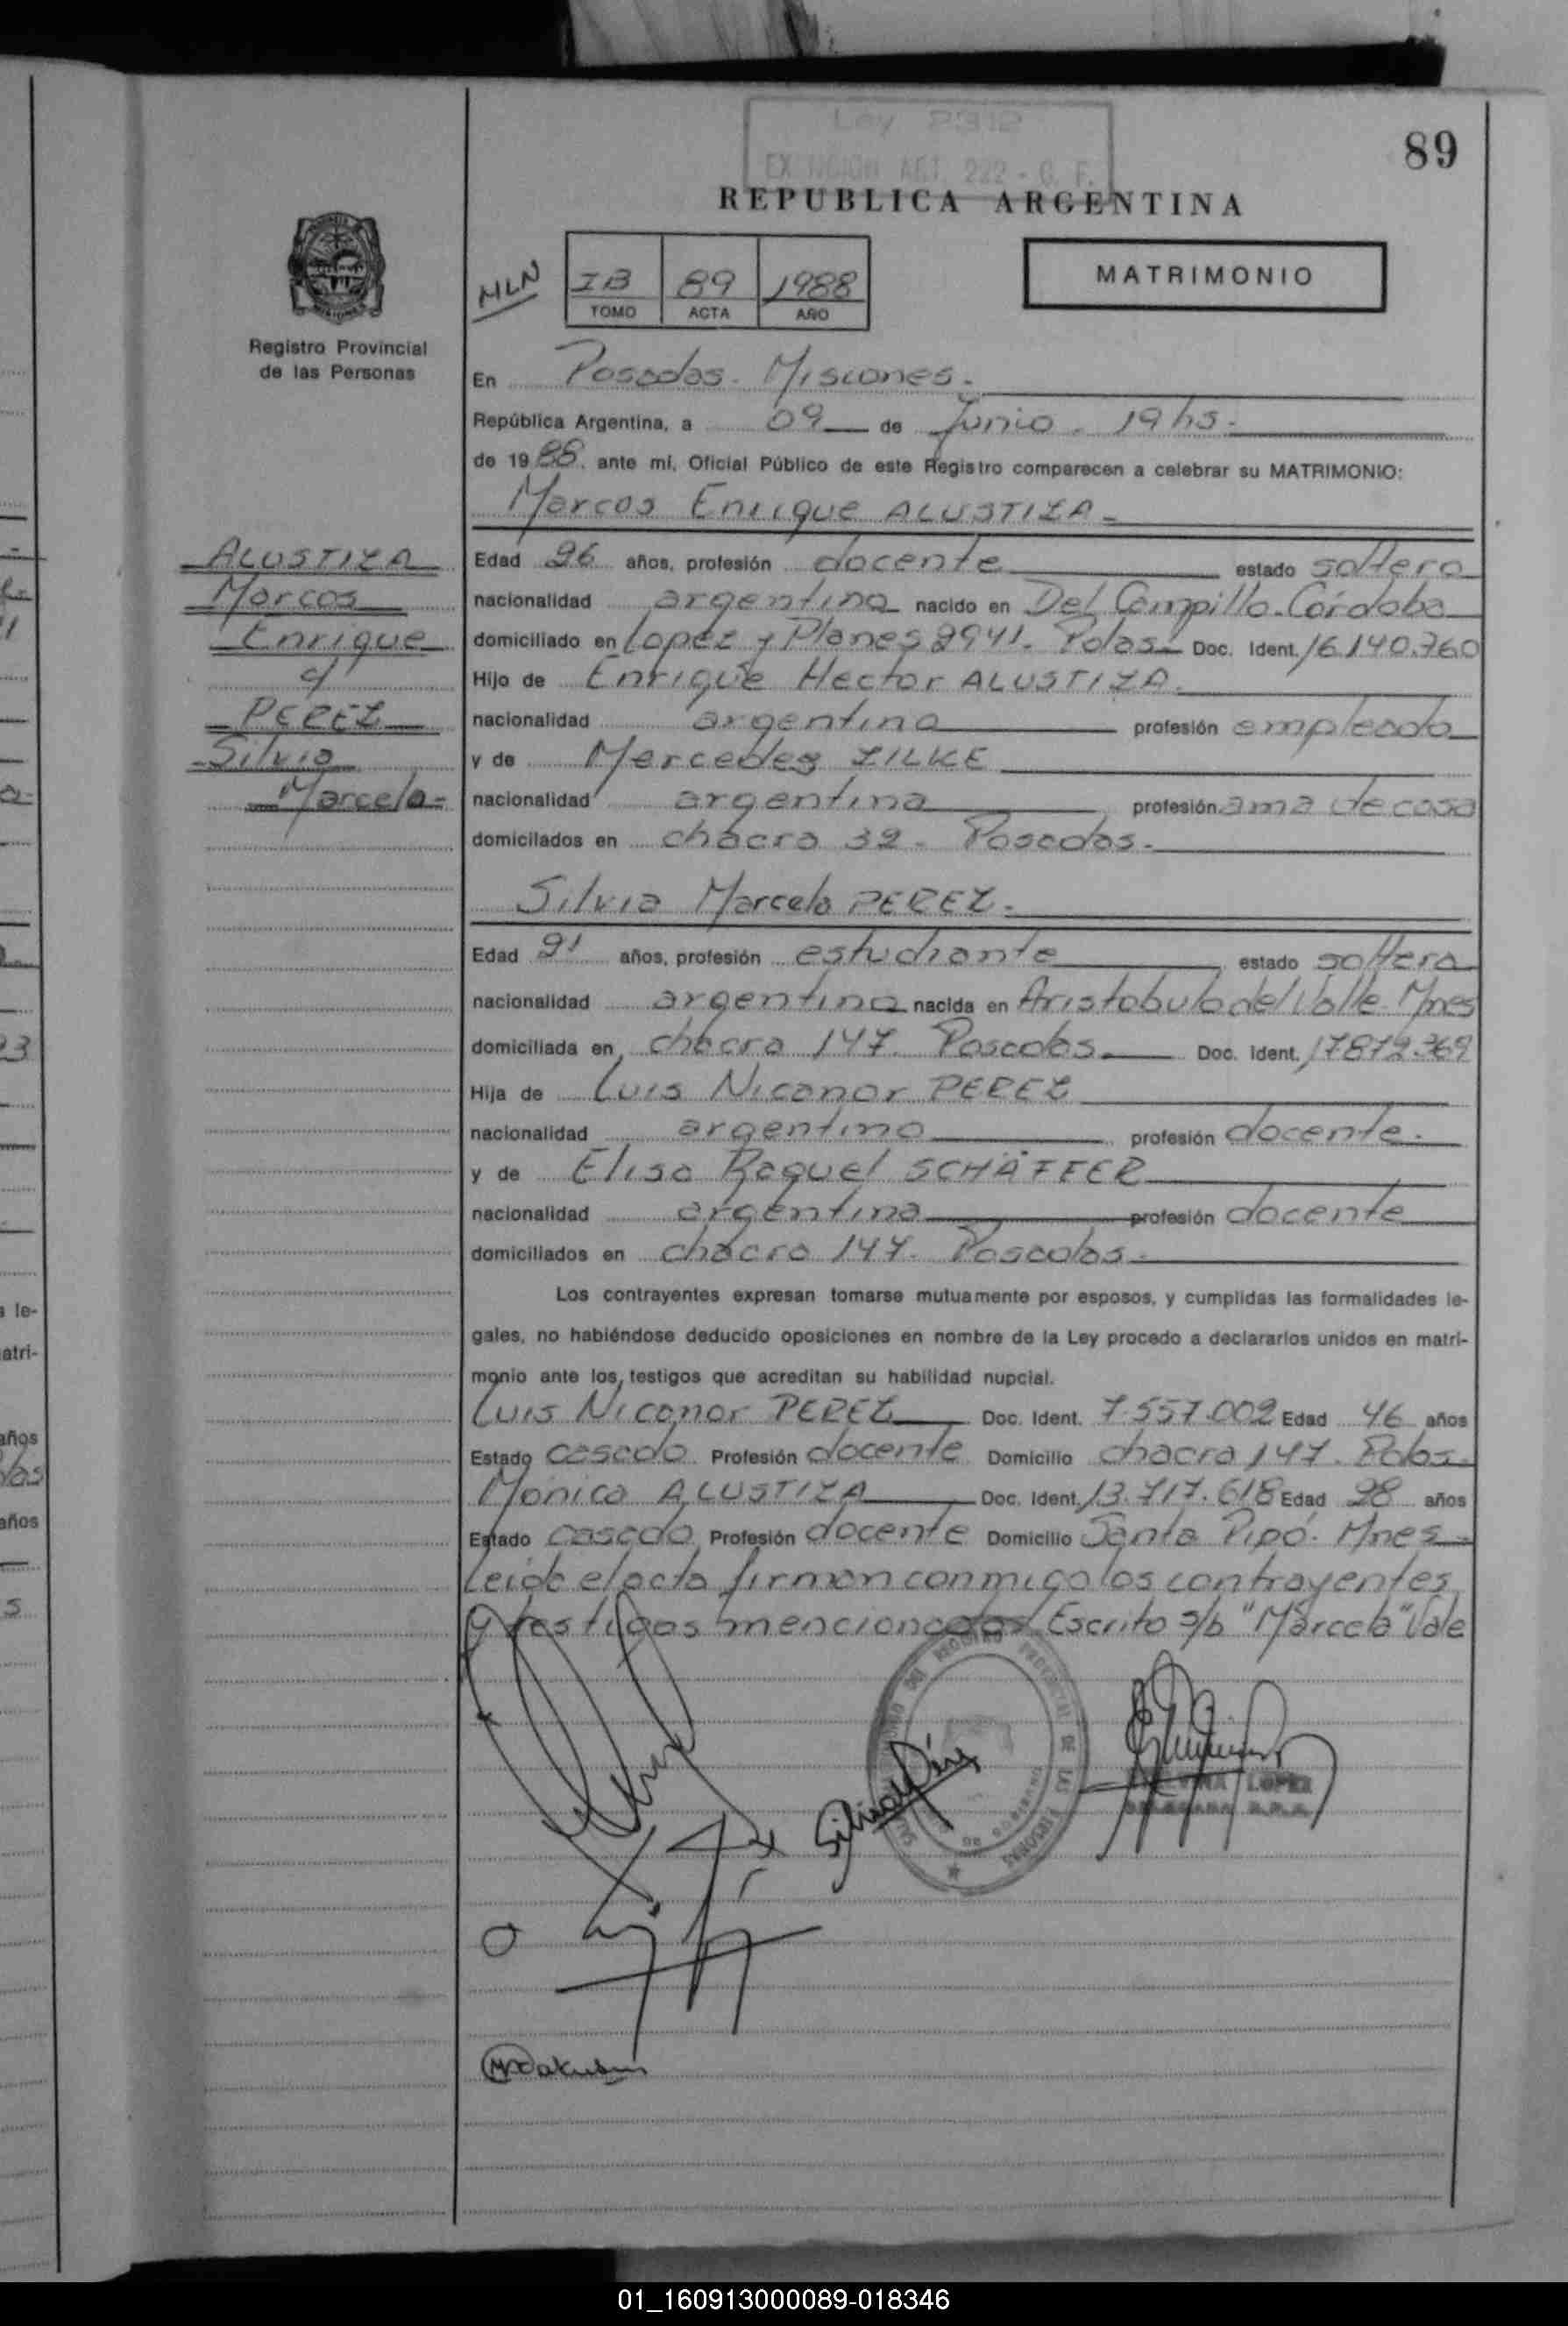 Ley 2312
EXENCION ART. 222 - C. F.
89
REPUBLICA ARGENTINA
MLN
IB 89 1988
TOMO ACTA AÑO
MATRIMONIO
Registro Provincial
de las Personas
En Posadas. Misiones.
República Argentina, a 09 de Junio. 19 hs.
de 1988. ante mí, Oficial Público de este Registro comparecen a celebrar su MATRIMONIO:
Marcos Enrique ALUSTIZA
ALUSTIZA
Marcos
Enrique
c/
PEREZ
Silvia
Marcela
Edad 26 años, profesión docente estado soltero
nacionalidad argentina nacido en Del Campillo. Córdoba
domiciliado en Lopez y Planes 2941. Pdas. Doc. Ident. 16.140.760
Hijo de Enrique Hector ALUSTIZA.
nacionalidad argentina profesión empleado
y de Mercedes ZILKE
nacionalidad argentina profesión ama de casa
domiciliados en chacra 32. Posadas.
Silvia Marcela PEREZ.
Edad 21 años, profesión estudiante estado soltera
nacionalidad argentina nacida en Aristobulo del Valle. Mnes
domiciliada en chacra 147. Posadas. Doc. Ident. 17.872.369
Hija de Luis Nicanor PEREZ
nacionalidad argentino profesión docente.
y de Elisa Raquel SCHÄFFER
nacionalidad argentina profesión docente
domiciliados en chacra 147. Posadas.
Los contrayentes expresan tomarse mutuamente por esposos, y cumplidas las formalidades le-
gales, no habiéndose deducido oposiciones en nombre de la Ley procedo a declararlos unidos en matri-
monio ante los testigos que acreditan su habilidad nupcial.
Luis Nicanor PEREZ Doc. Ident. 7.557.002 Edad 46 años
Estado casado Profesión docente Domicilio chacra 147. Pdas.
Mónica ALUSTIZA Doc. Ident. 13.717.618 Edad 28 años
Estado casada Profesión docente Domicilio Santa Pipó. Mnes
Leida el acta firman conmigo los contrayentes
y testigos mencionados. Escrito s/b "Marcela" Vale
LOPEZ
01_160913000089-018346